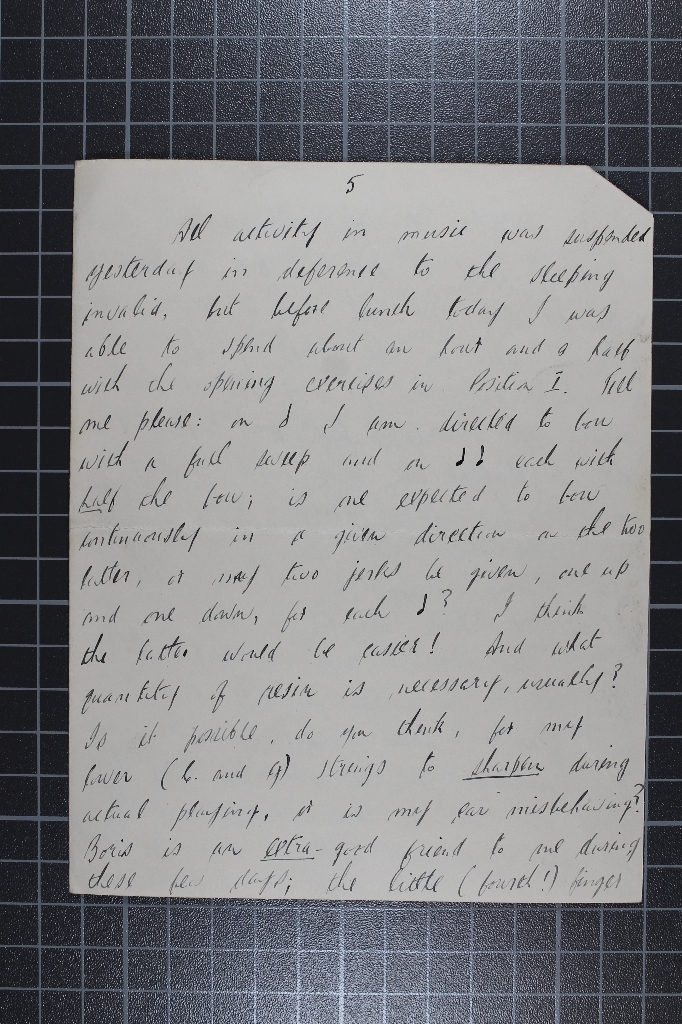 5
All activity in music was suspended
yesterday in deference to the sleeping
invalid, but before lunch today I was
able to spend about an hour and a half
with the opening exercises in Position I. Tell
me please: on 𝅗𝅥 I am directed to bow
with a full sweep and on ♩♩ each with
half the bow; is one expected to bow
continuously in a given direction on the two
latter, or may two jerks be given, one up
and one down, for each ♩? I think
the latter would be easier! And what
quantity of resin is necessary, usually?
Is it possible, do you think, for my
lower (C. and G) strings to sharpen during
actual playing, or is my ear misbehaving?
Boris is an extra-good friend to me during
these few days; the little (fourth!) finger